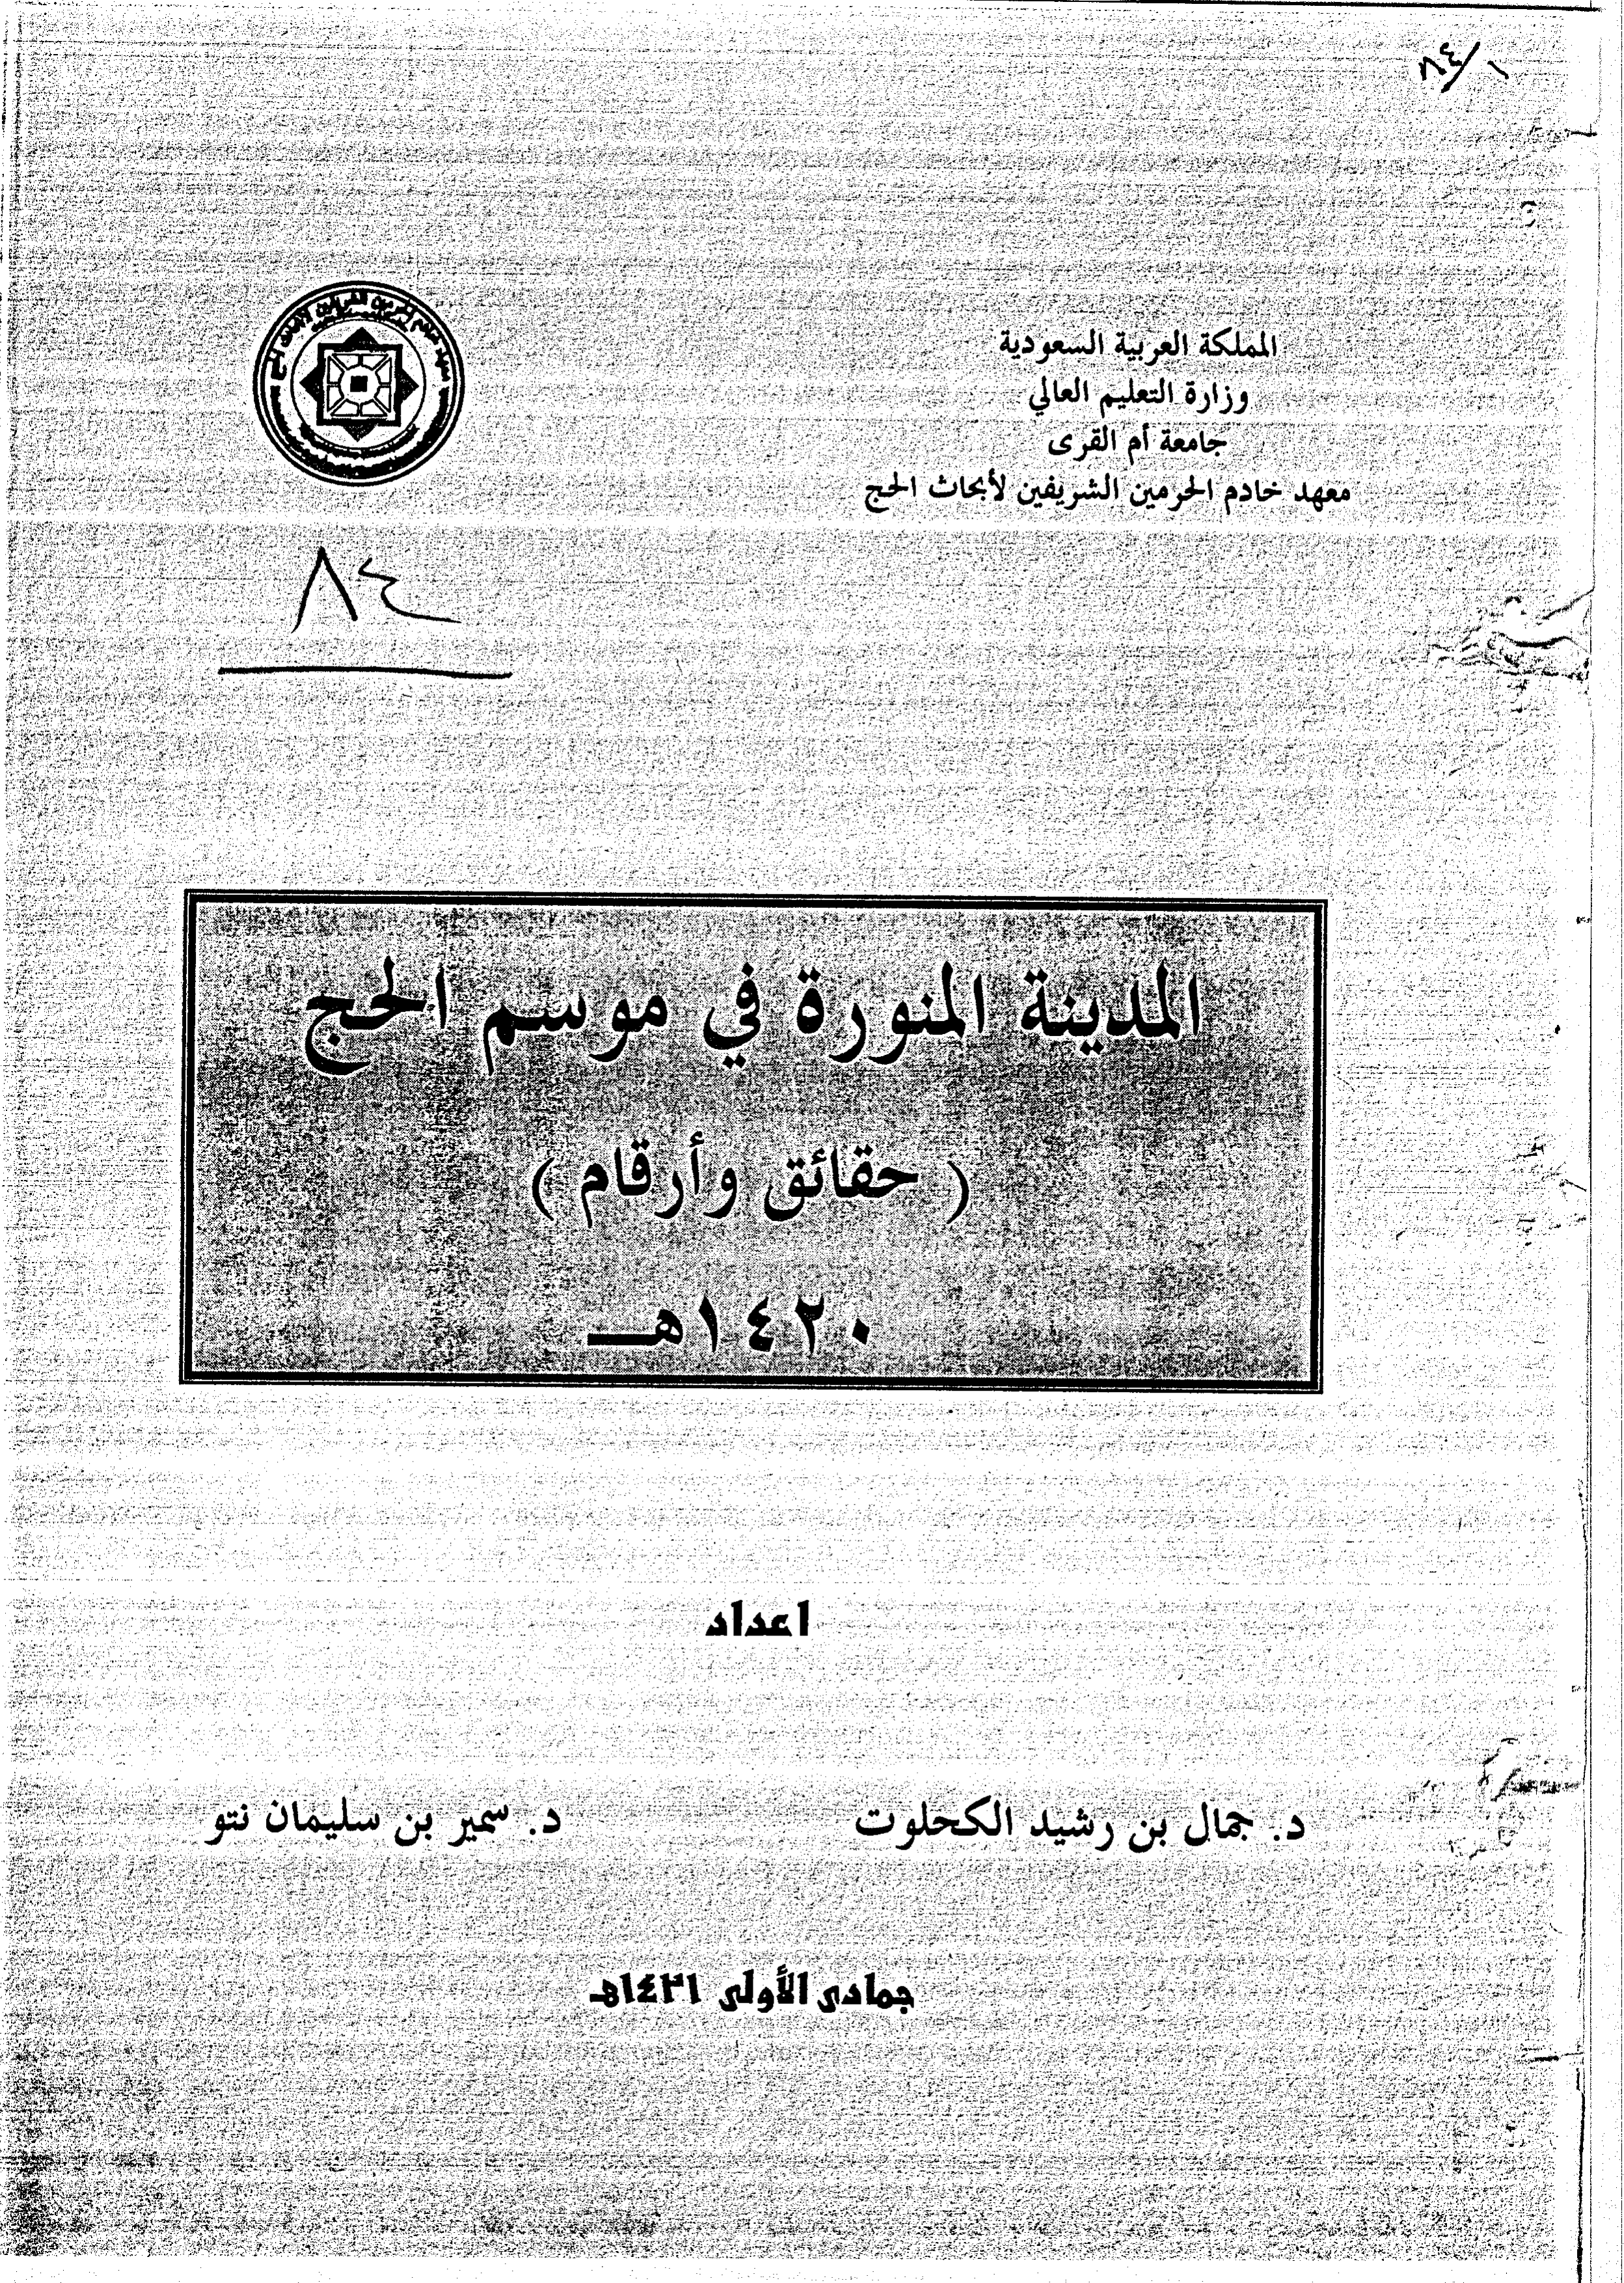 ٨٤/١
المملكة العربية السعودية
وزارة التعليم العالي
جامعة أم القرى
معهد خادم الحرمين الشريفين لأبحاث الحج
٨٤
المدينة المنورة في موسم الحج
( حقائق وأرقام )
١٤٢٠هــ
اعداد
د. جمال بن رشيد الكحلوت
د. سمير بن سليمان نتو
جمادى الأولى ١٤٢١هـ